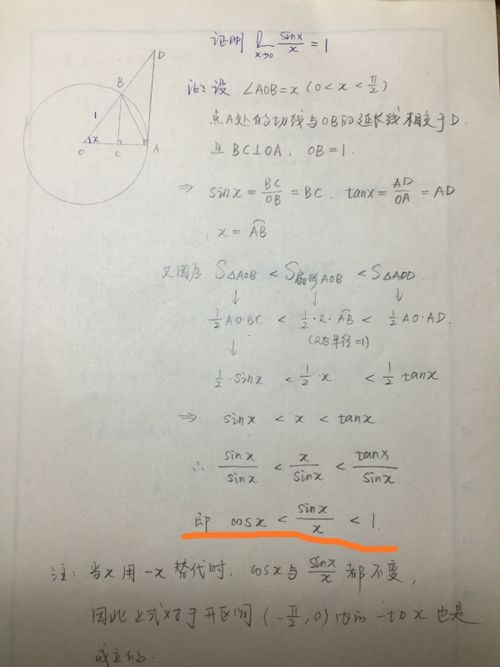 证明 lim x→0 sinx/x = 1
D
B
1
x
O
C
A
证: 设 ∠AOB=x (0<x<π/2)
点A处的切线与OB的延长线相交于D
且 BC⊥OA, OB=1.
⇒ sinx = BC/OB = BC. tanx = AD/OA = AD
x = AB
又因为 S△AOB < S扇形AOB < S△AOD
↓ ↓ ↓
1/2 AO·BC < 1/2·R·AB < 1/2 AO·AD.
(R为半径=1)
↓
1/2·sinx < 1/2·x < 1/2 tanx
⇒ sinx < x < tanx
∴ sinx/sinx < x/sinx < tanx/sinx
即 cosx < sinx/x < 1.
注: 当x用-x替代时, cosx与 sinx/x 都不变,
因此上式对于开区间 (-π/2, 0) 内的一切x也是
成立的.